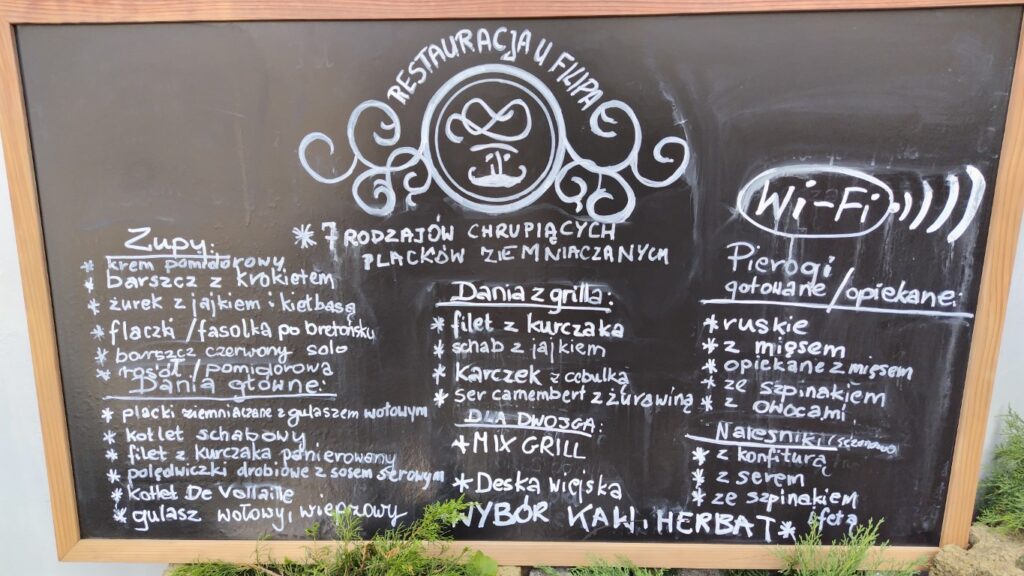 RESTAURACJA U FILIPA
* 7 RODZAJÓW CHRUPIĄCYCH
PLACKÓW ZIEMNIACZANYCH
Zupy:
* krem pomidorowy
* barszcz z krokietem
* żurek z jajkiem i kiełbasą
* flaczki/fasolka po bretońsku
* barszcz czerwony solo
* rosół/pomidorowa
Dania główne:
* placki ziemniaczane z gulaszem wołowym
* kotlet schabowy
* filet z kurczaka panierowany
* polędwiczki drobiowe z sosem serowym
* kotlet De Vollaille
* gulasz wołowy, wieprzowy
Dania z grilla:
* filet z kurczaka
* schab z jajkiem
* karczek z cebulką
* ser camembert z żurawiną
DLA DWOJGA:
* MIX GRILL
* Deska wiejska
WYBÓR KAW i HERBAT *
Wi-Fi
Pierogi
gotowane/opiekane:
* ruskie
* z mięsem
* opiekane z mięsem
* ze szpinakiem
* z owocami
Naleśniki/
* z konfiturą
* z serem
* ze szpinakiem
i fetą